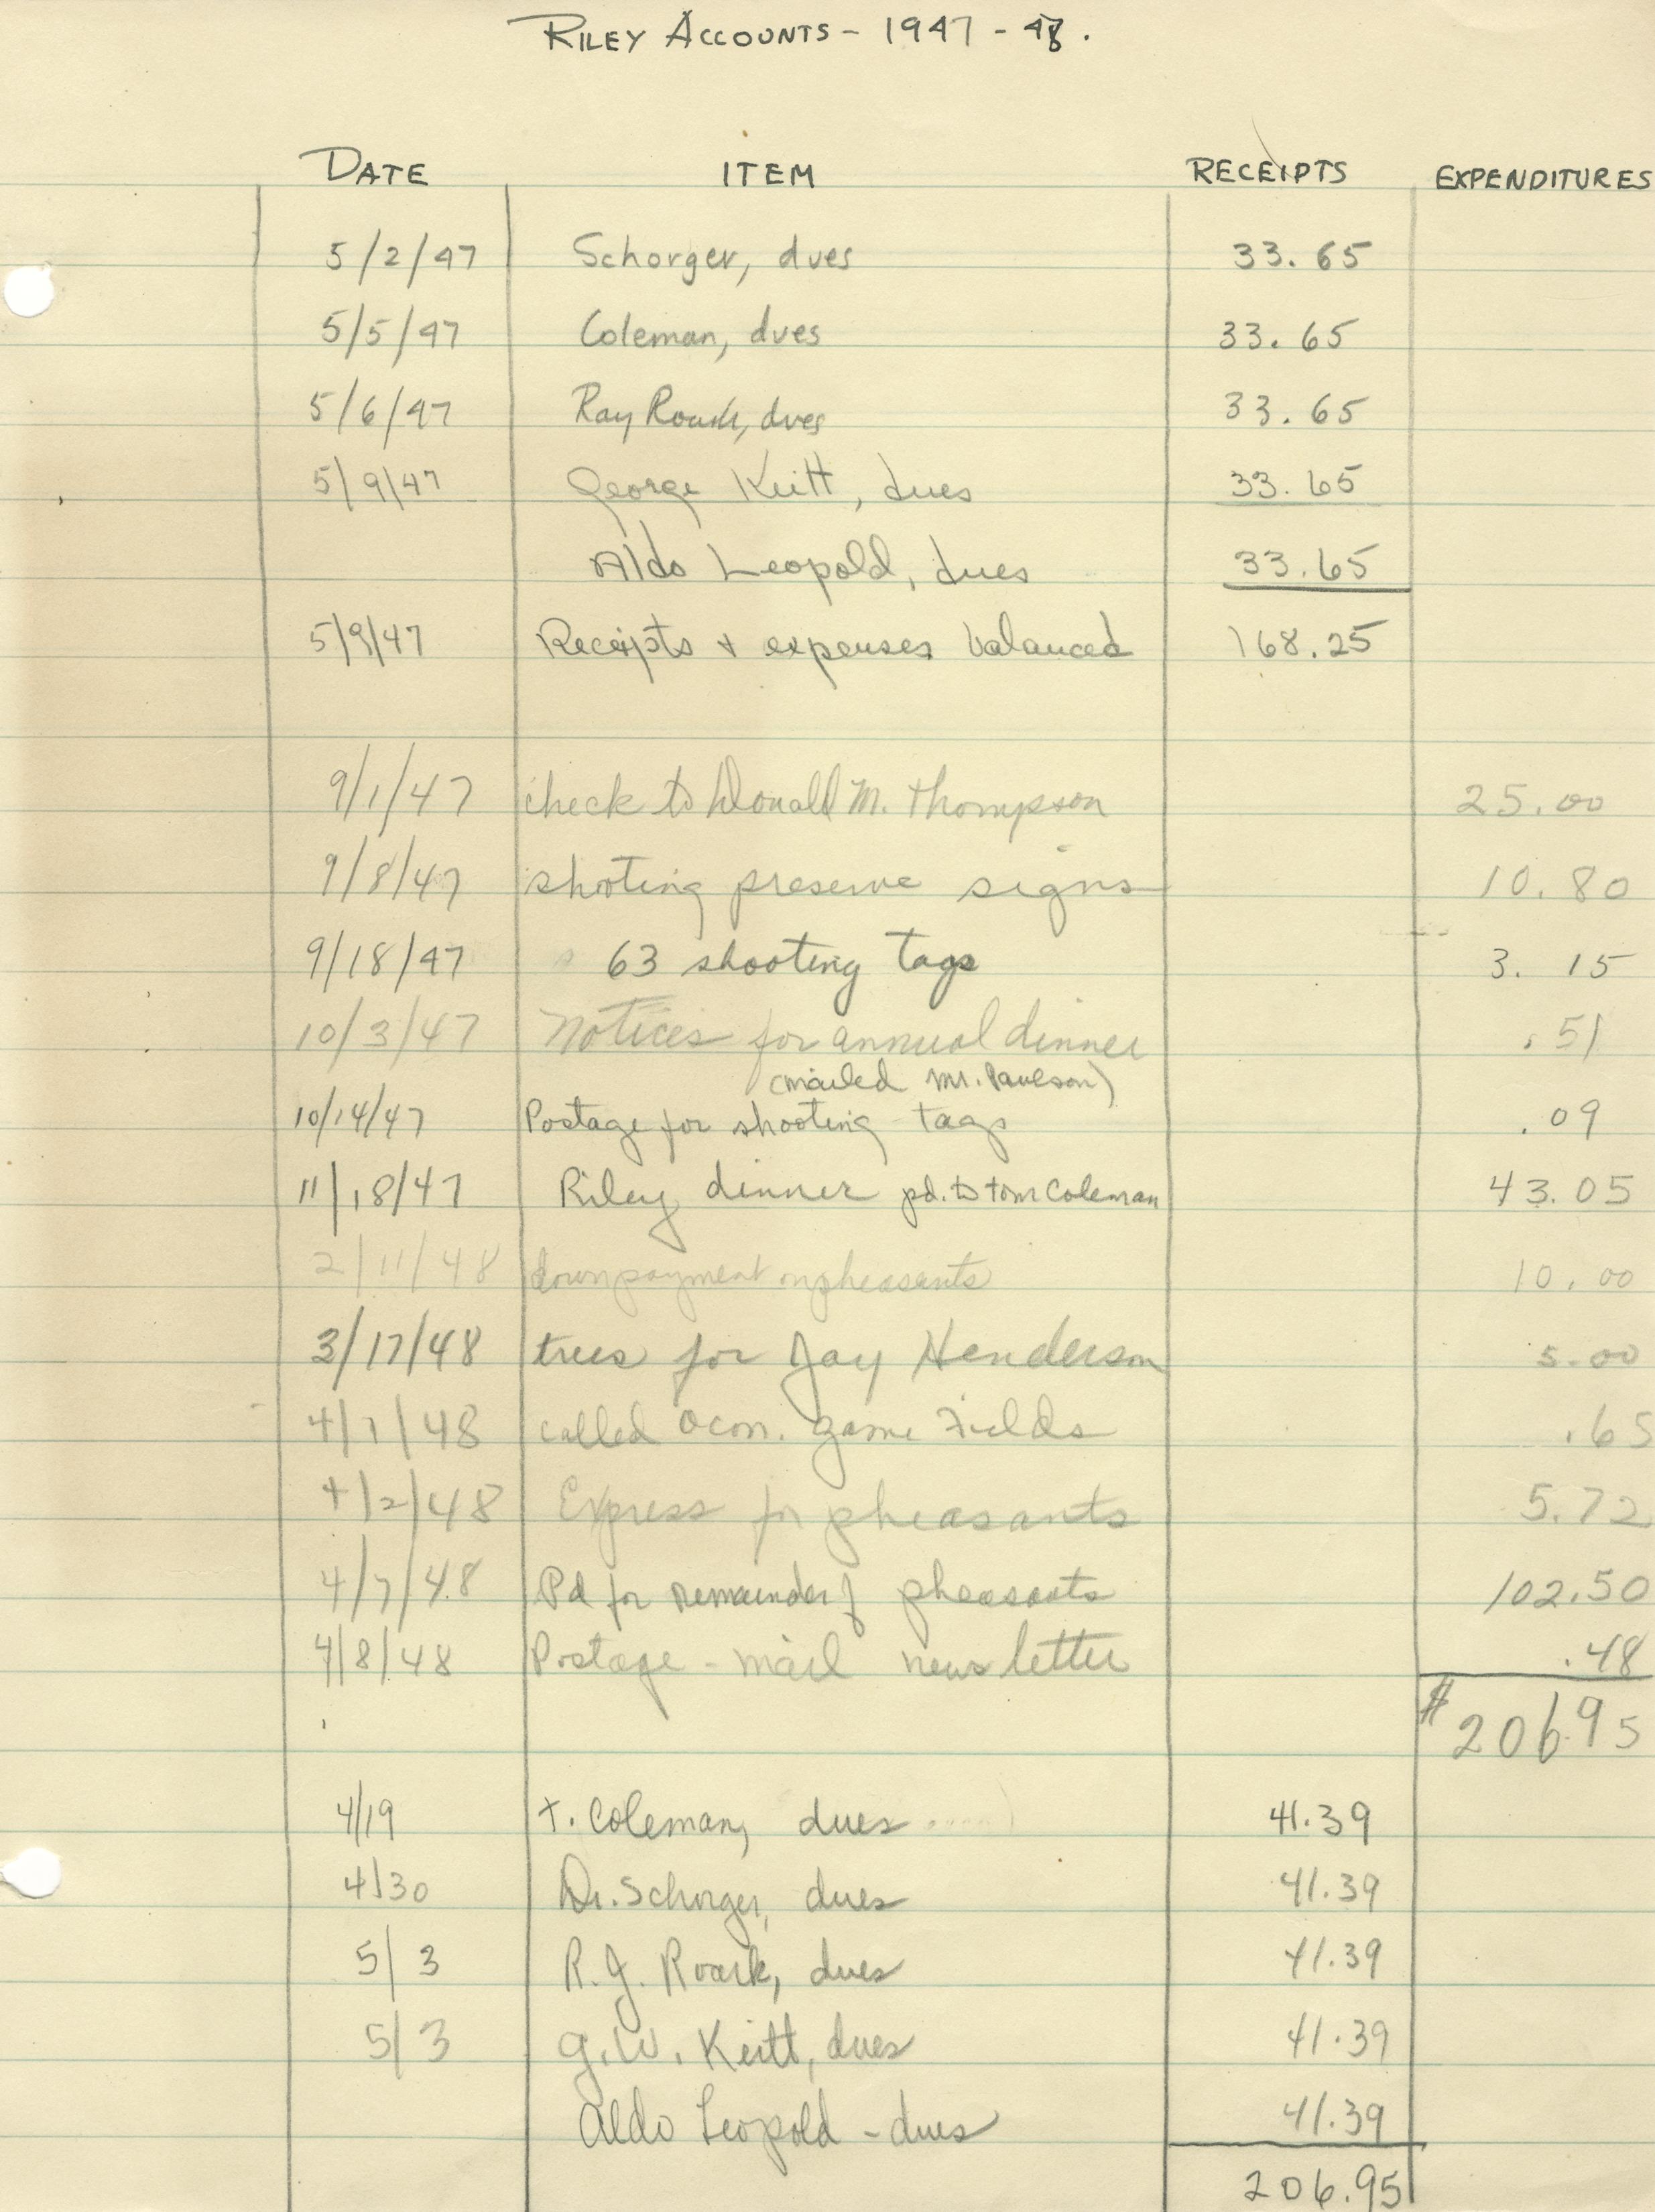 RILEY ACCOUNTS - 1947 - 48.
DATE ITEM RECEIPTS EXPENDITURES
5/2/47 Schorger, dues 33.65
5/5/47 Coleman, dues 33.65
5/6/47 Ray Roark, dues 33.65
5/9/47 George Keitt, dues 33.65
Aldo Leopold, dues 33.65
5/9/47 Receipts + expenses balanced 168.25
9/1/47 check to Donald M. Thompson 25.00
9/8/47 shooting preserve signs 10.80
9/18/47 63 shooting tags 3.15
10/3/47 Notices for annual dinner .51
(mailed Mr. Paulson)
10/14/47 Postage for shooting tags .09
11/18/47 Riley dinner pd. to Tom Coleman 43.05
2/11/48 downpayment on pheasants 10.00
3/17/48 trees for Jay Henderson 5.00
4/1/48 called Ocon. Game Fields .65
4/2/48 Express for pheasants 5.72
4/7/48 Pd for remainder of pheasants 102.50
4/8/48 Postage - mail news letter .48
$206.95
4/19 T. Coleman, dues 41.39
4/30 Dr. Schorger, dues 41.39
5/3 R.J. Roark, dues 41.39
5/3 G.W. Keitt, dues 41.39
Aldo Leopold - dues 41.39
206.95